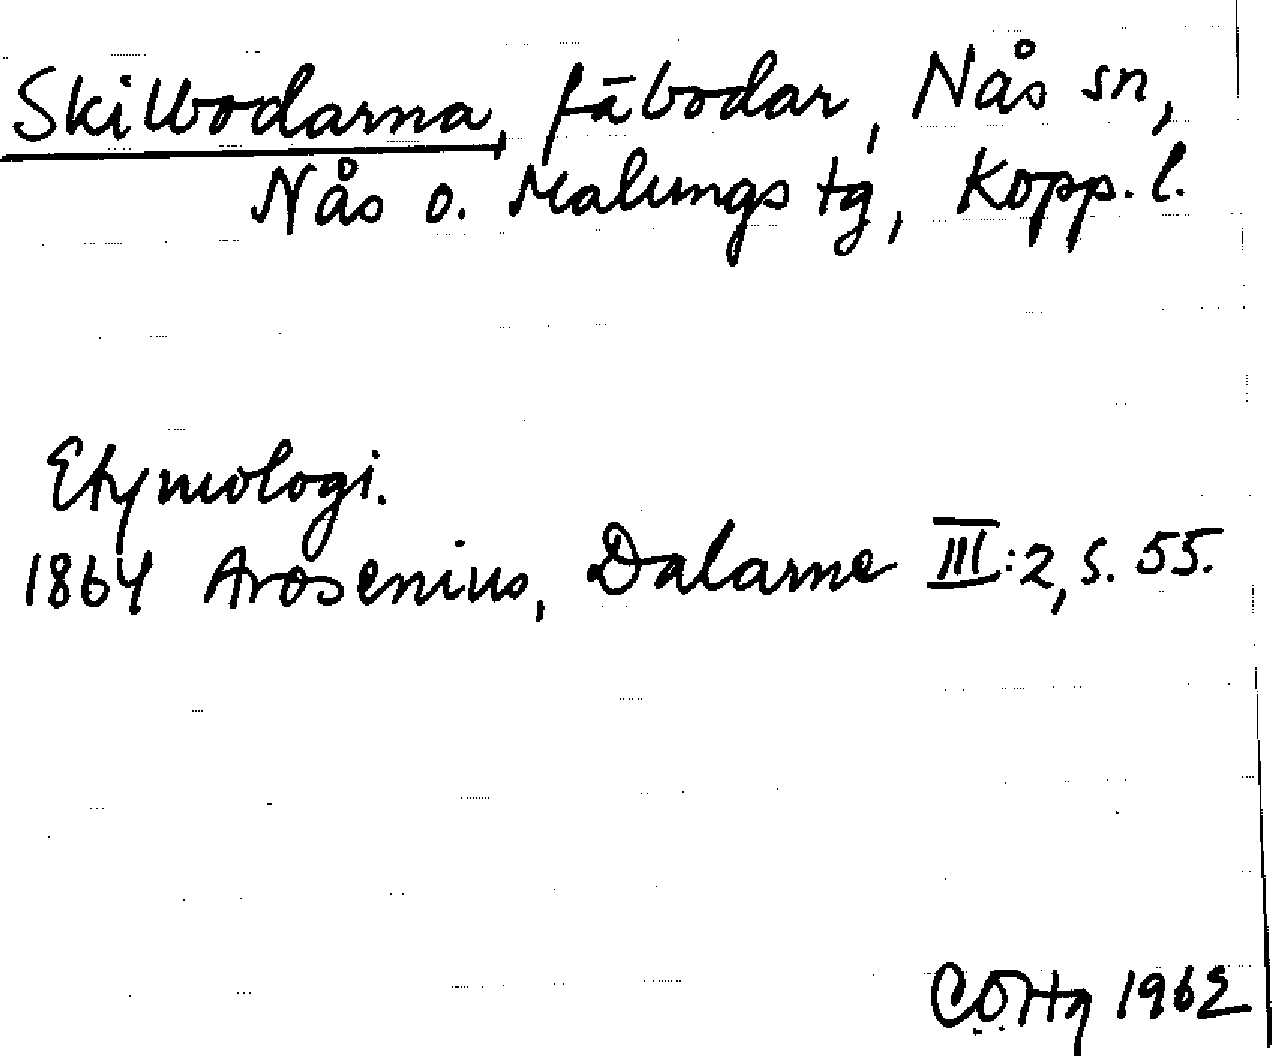 Skilbodarna, fäbodar, Nås sn,
Nås o. Malungs tg, Kopp. l.
Etymologi.
1864 Arosenius, Dalarne III:2, s. 55.
1962